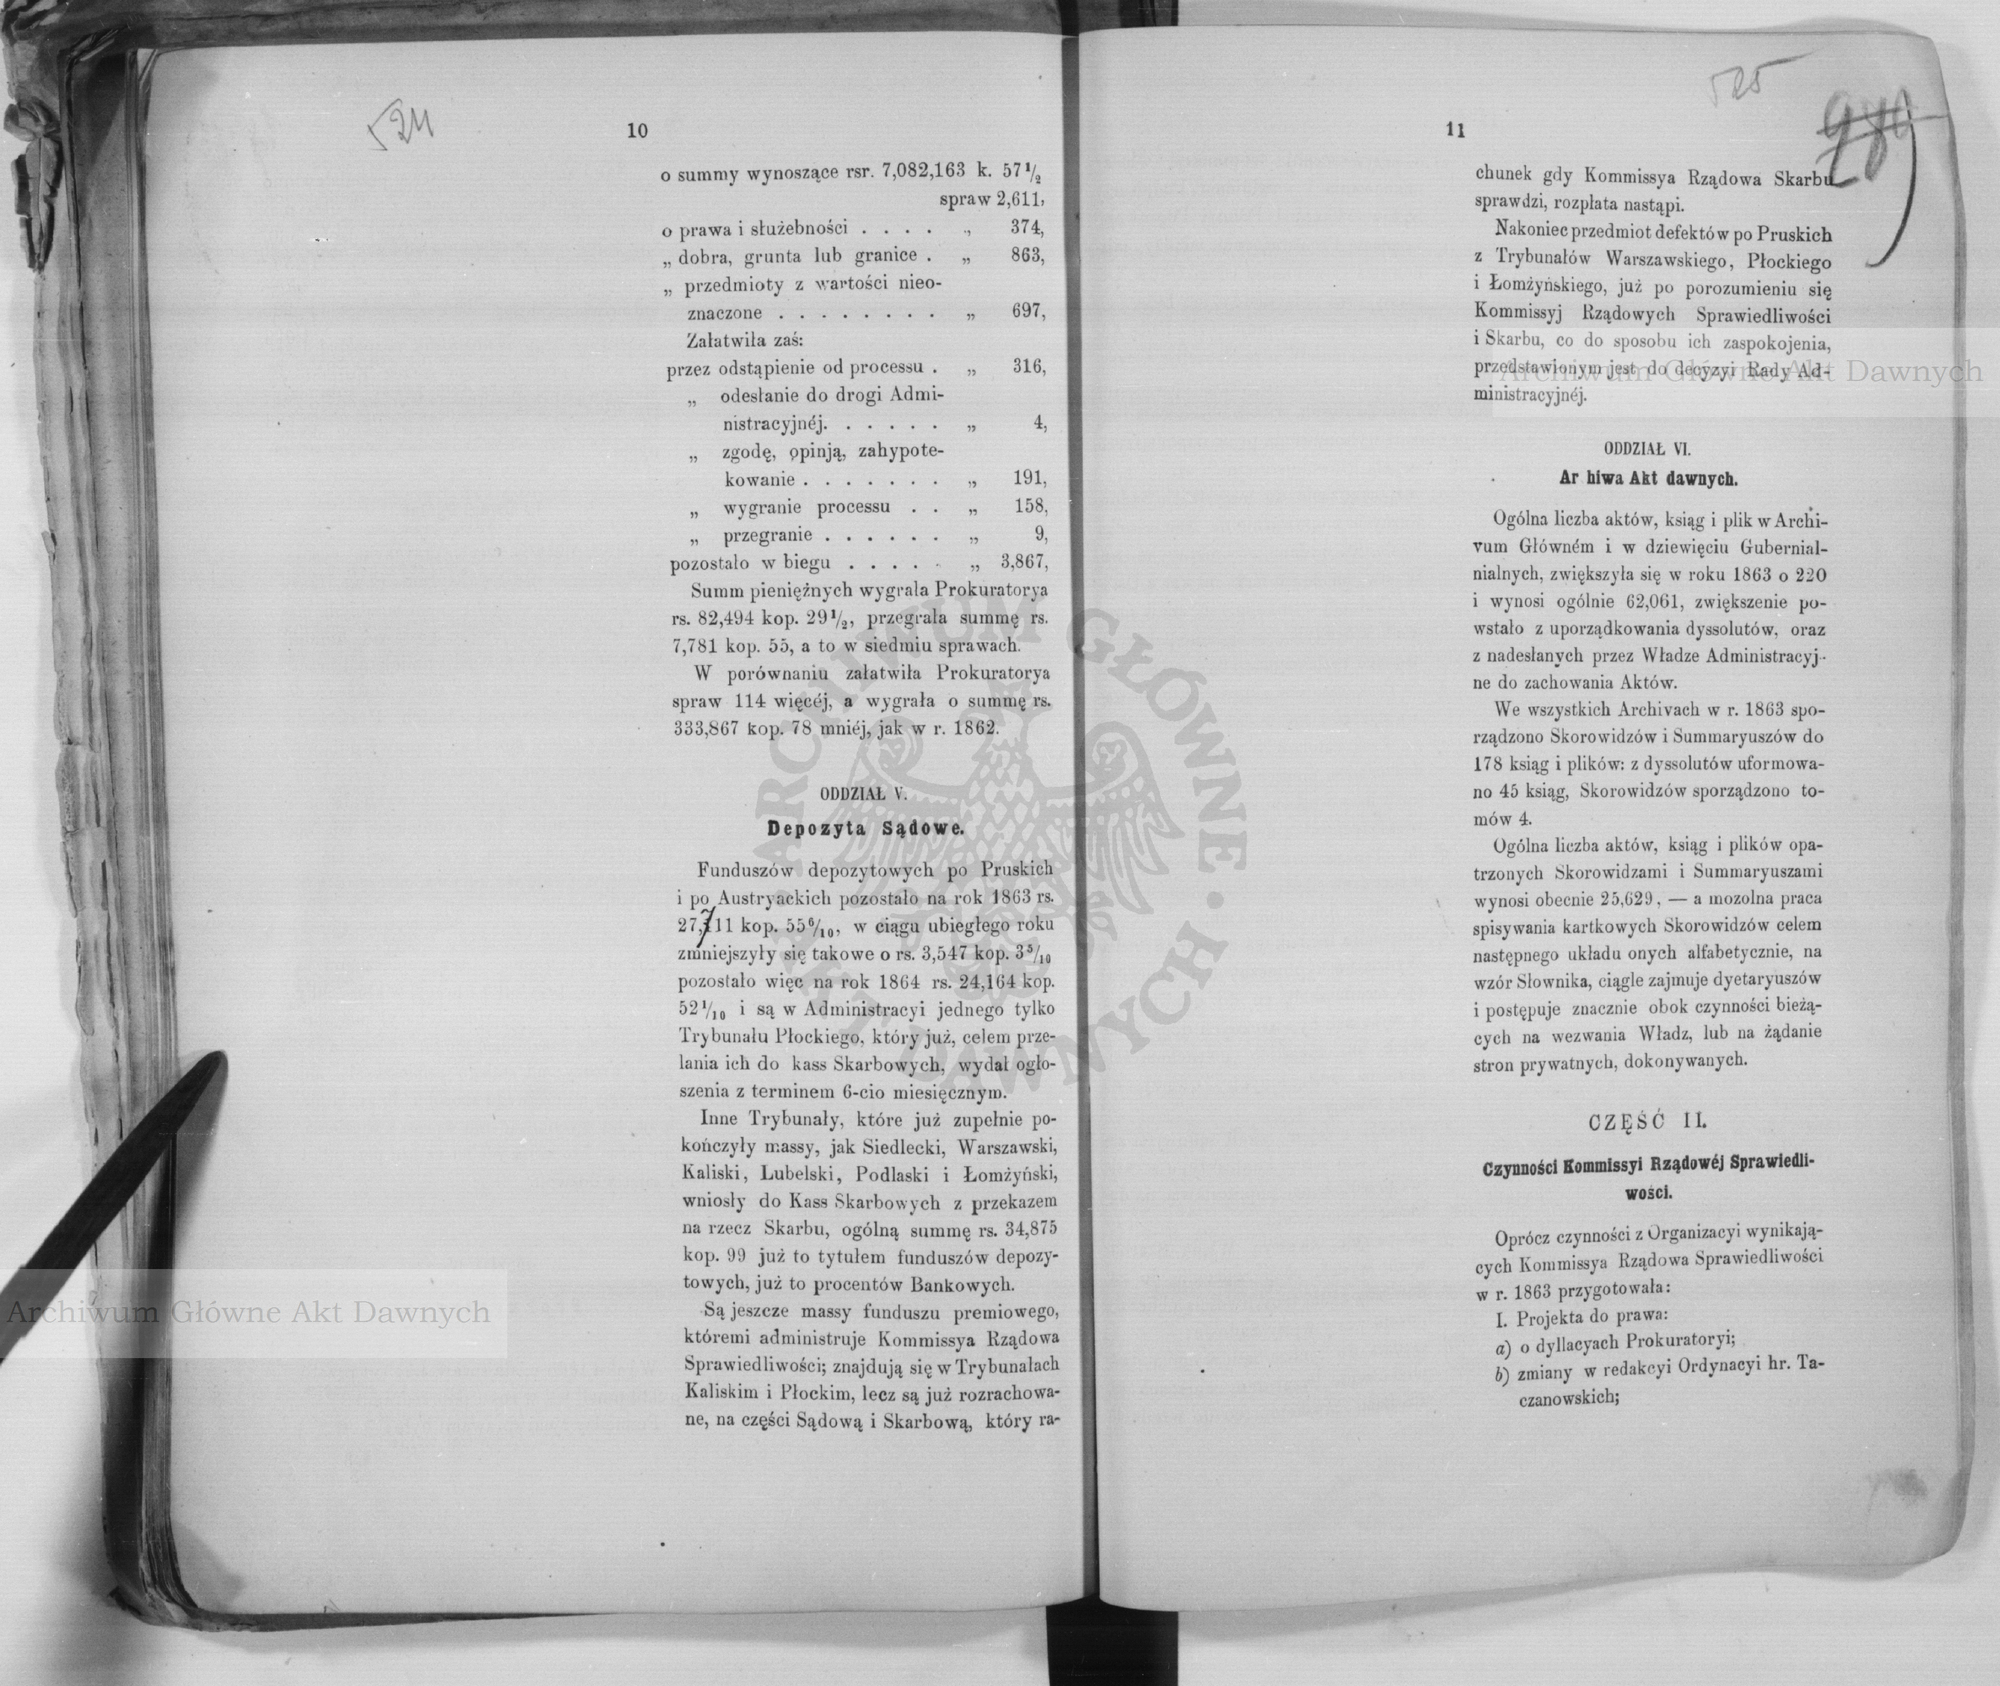 524
10
o summy wynoszące rsr. 7,082,163 k. 57 1/2
spraw 2,611,
o prawa i służebności . . . . „ 374,
„ dobra, grunta lub granice . „ 863,
„ przedmioty z wartości nieo-
znaczone . . . . . . . . „ 697,
Załatwiła zaś:
przez odstąpienie od processu . „ 316,
„ odesłanie do drogi Admi-
nistracyjnéj. . . . . . „ 4,
„ zgodę, opinją, zahypote-
kowanie . . . . . . . „ 191,
„ wygranie processu . . „ 158,
„ przegranie . . . . . . „ 9,
pozostało w biegu . . . . . „ 3,867,
Summ pieniężnych wygrała Prokuratorya
rs. 82,494 kop. 29 1/2, przegrała summę rs.
7,781 kop. 55, a to w siedmiu sprawach.
W porównaniu załatwiła Prokuratorya
spraw 114 więcéj, a wygrała o summę rs.
333,867 kop. 78 mniéj, jak w r. 1862.
ODDZIAŁ V.
Depozyta Sądowe.
Funduszów depozytowych po Pruskich
i po Austryackich pozostało na rok 1863 rs.
27,711 kop. 55 6/10, w ciągu ubiegłego roku
zmniejszyły się takowe o rs. 3,547 kop. 3 5/10
pozostało więc na rok 1864 rs. 24,164 kop.
52 1/10 i są w Administracyi jednego tylko
Trybunału Płockiego, który już, celem prze-
lania ich do kass Skarbowych, wydał ogło-
szenia z terminem 6-cio miesięcznym.
Inne Trybunały, które już zupełnie po-
kończyły massy, jak Siedlecki, Warszawski,
Kaliski, Lubelski, Podlaski i Łomżyński,
wniosły do Kass Skarbowych z przekazem
na rzecz Skarbu, ogólną summę rs. 34,875
kop. 99 już to tytułem funduszów depozy-
towych, już to procentów Bankowych.
Są jeszcze massy funduszu premiowego,
któremi administruje Kommissya Rządowa
Sprawiedliwości; znajdują się w Trybunałach
Kaliskim i Płockim, lecz są już rozrachowa-
ne, na części Sądową i Skarbową, który ra-
525
289
11
chunek gdy Kommissya Rządowa Skarbu
sprawdzi, rozpłata nastąpi.
Nakoniec przedmiot defektów po Pruskich
z Trybunałów Warszawskiego, Płockiego
i Łomżyńskiego, już po porozumieniu się
Kommissyj Rządowych Sprawiedliwości
i Skarbu, co do sposobu ich zaspokojenia,
przedstawionym jest do decyzyi Rady Ad-
ministracyjnéj.
ODDZIAŁ VI.
Ar hiwa Akt dawnych.
Ogólna liczba aktów, ksiąg i plik w Archi-
vum Główném i w dziewięciu Gubernial-
nialnych, zwiększyła się w roku 1863 o 220
i wynosi ogólnie 62,061, zwiększenie po-
wstało z uporządkowania dyssolutów, oraz
z nadesłanych przez Władze Administracyj-
ne do zachowania Aktów.
We wszystkich Archivach w r. 1863 spo-
rządzono Skorowidzów i Summaryuszów do
178 ksiąg i plików: z dyssolutów uformowa-
no 45 ksiąg, Skorowidzów sporządzono to-
mów 4.
Ogólna liczba aktów, ksiąg i plików opa-
trzonych Skorowidzami i Summaryuszami
wynosi obecnie 25,629, — a mozolna praca
spisywania kartkowych Skorowidzów celem
następnego układu onych alfabetycznie, na
wzór Słownika, ciągle zajmuje dyetaryuszów
i postępuje znacznie obok czynności bieżą-
cych na wezwania Władz, lub na żądanie
stron prywatnych, dokonywanych.
CZĘŚĆ II.
Czynności Kommissyi Rządowéj Sprawiedli-
wości.
Oprócz czynności z Organizacyi wynikają-
cych Kommissya Rządowa Sprawiedliwości
w r. 1863 przygotowała:
I. Projekta do prawa:
a) o dyllacyach Prokuratoryi;
b) zmiany w redakcyi Ordynacyi hr. Ta-
czanowskich;
Archiwum Główne Akt Dawnych
Archiwum Główne Akt Dawnych
ARCHIWUM GŁÓWNE · AKT DAWNYCH ·